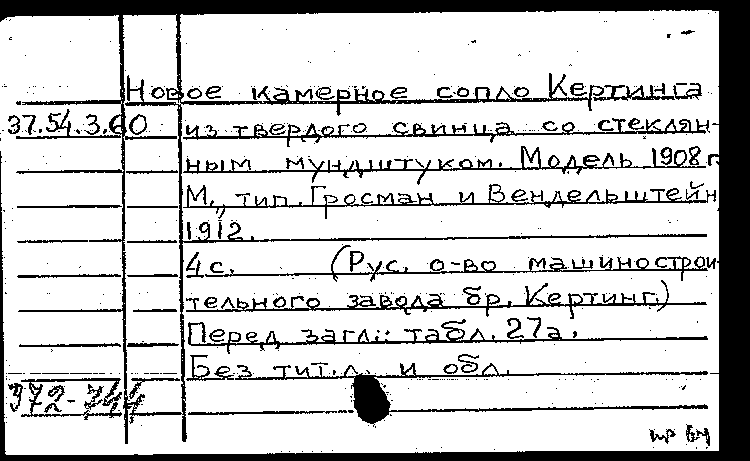 Новое камерное сопло Кертинга
37.54.3.60 из твердого свинца со стеклян-
ным мундштуком. Модель 1908 г.
М., тип. Гросман и Вендельштейн
1912.
4 с. (Рус. о-во машинострои-
тельного завода бр. Кертинг.)
Перед загл.: табл. 27а.
Без тит. л. и обл.
372-744